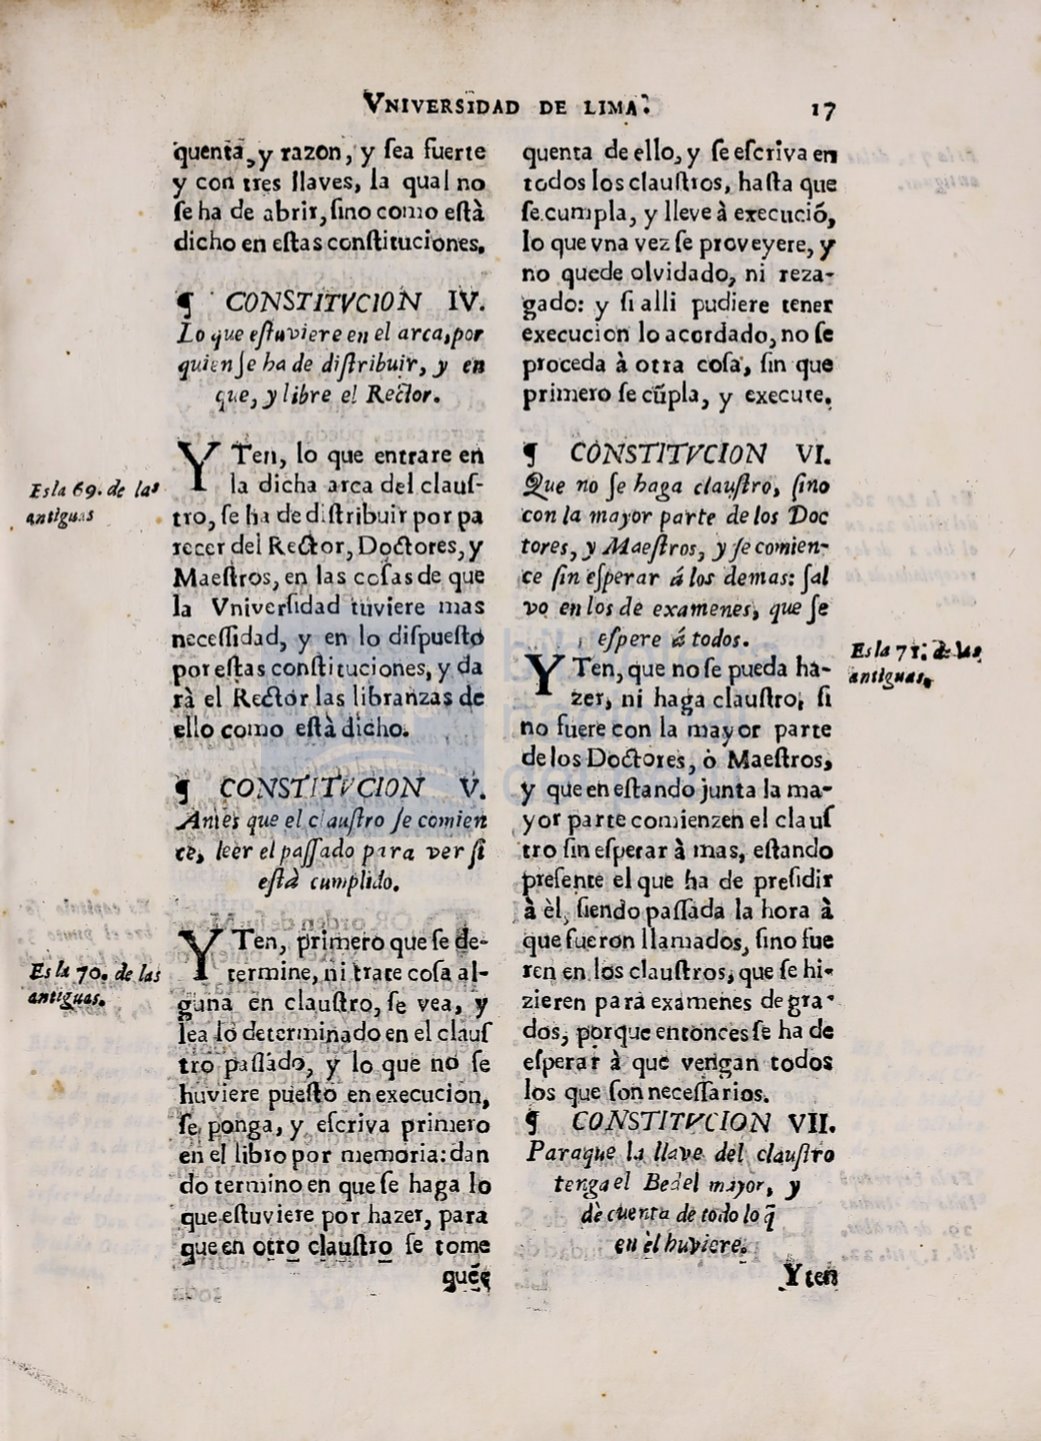 VNIVERSIDAD DE LIMA. 17
quenta, y razon, y ſea fuerte
y con tres llaves, la qual no
ſe ha de abrir, ſino como eſtà
dicho en eſtas conſtituciones.
¶ CONSTITVCION IV.
Lo que eſtuviere en el arca, por
quien ſe ha de diſtribuir, y en
que, y libre el Rector.
Es la 69. de las
antiguas
YTen, lo que entrare en
la dicha arca del clauſ-
tro, ſe ha de diſtribuir por pa
recer del Rector, Doctores, y
Maeſtros, en las coſas de que
la Vniverſidad tuviere mas
neceſſidad, y en lo diſpueſto
por eſtas conſtituciones, y da
rà el Rector las libranzas de
ello como eſtà dicho.
¶ CONSTITVCION V.
Antes que el clauſtro ſe comien
ce, leer el paſſado para ver ſi
eſtà cumplido.
Es la 70. de las
antiguas.
YTen, primero que ſe de-
termine, ni trate coſa al-
guna en clauſtro, ſe vea, y
lea lo determinado en el clauſ
tro paſſado, y lo que no ſe
huviere pueſto en execucion,
ſe ponga, y eſcriva primero
en el libro por memoria: dan
do termino en que ſe haga lo
que eſtuviere por hazer, para
que en otro clauſtro ſe tome
quenta de ello, y ſe eſcriva en
todos los clauſtros, haſta que
ſe cumpla, y lleve à execució,
lo que vna vez ſe proveyere, y
no quede olvidado, ni reza-
gado: y ſi alli pudiere tener
execucion lo acordado, no ſe
proceda à otra coſa, ſin que
primero ſe cũpla, y execute.
¶ CONSTITVCION VI.
Que no ſe haga clauſtro, ſino
con la mayor parte de los Doc
tores, y Maeſtros, y ſe comien-
ce ſin eſperar á los demas: ſal
vo en los de examenes, que ſe
eſpere á todos.
Es la 71. de las
antiguas.
YTen, que no ſe pueda ha-
zer, ni haga clauſtro, ſi
no fuere con la mayor parte
de los Doctores, ò Maeſtros,
y que en eſtando junta la ma-
yor parte comienzen el clauſ
tro ſin eſperar à mas, eſtando
preſente el que ha de preſidir
à èl, ſiendo paſſada la hora à
que fueron llamados, ſino fue
ren en los clauſtros, que ſe hi-
zieren para examenes de gra-
dos, porque entonces ſe ha de
eſperar à que vengan todos
los que ſon neceſſarios.
¶ CONSTITVCION VII.
Para que la llave del clauſtro
tenga el Bedel mayor, y
dè cuenta de todo lo q̃
en èl huviere.
Yten